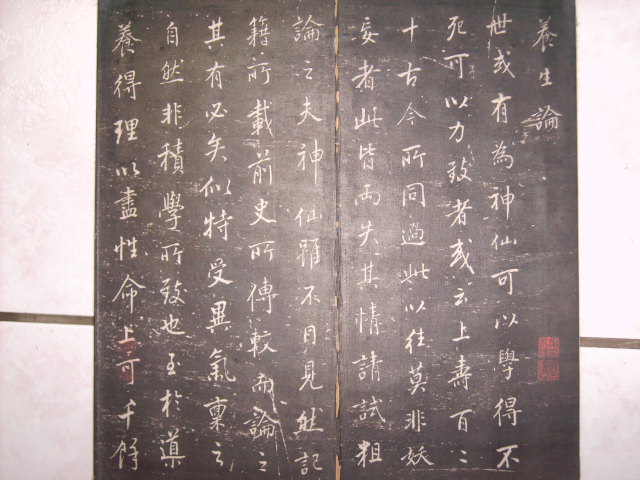 養生論
世或有為神仙可以學得不
死可以力致者或云上壽百二
十古今所同過此以往莫非妖
妄者此皆兩失其情請試粗
論之夫神仙雖不目見然記
籍所載前史所傳較而論之
其有必矣似特受異氣稟之
自然非積學所致也至於導
養得理以盡性命上可千餘